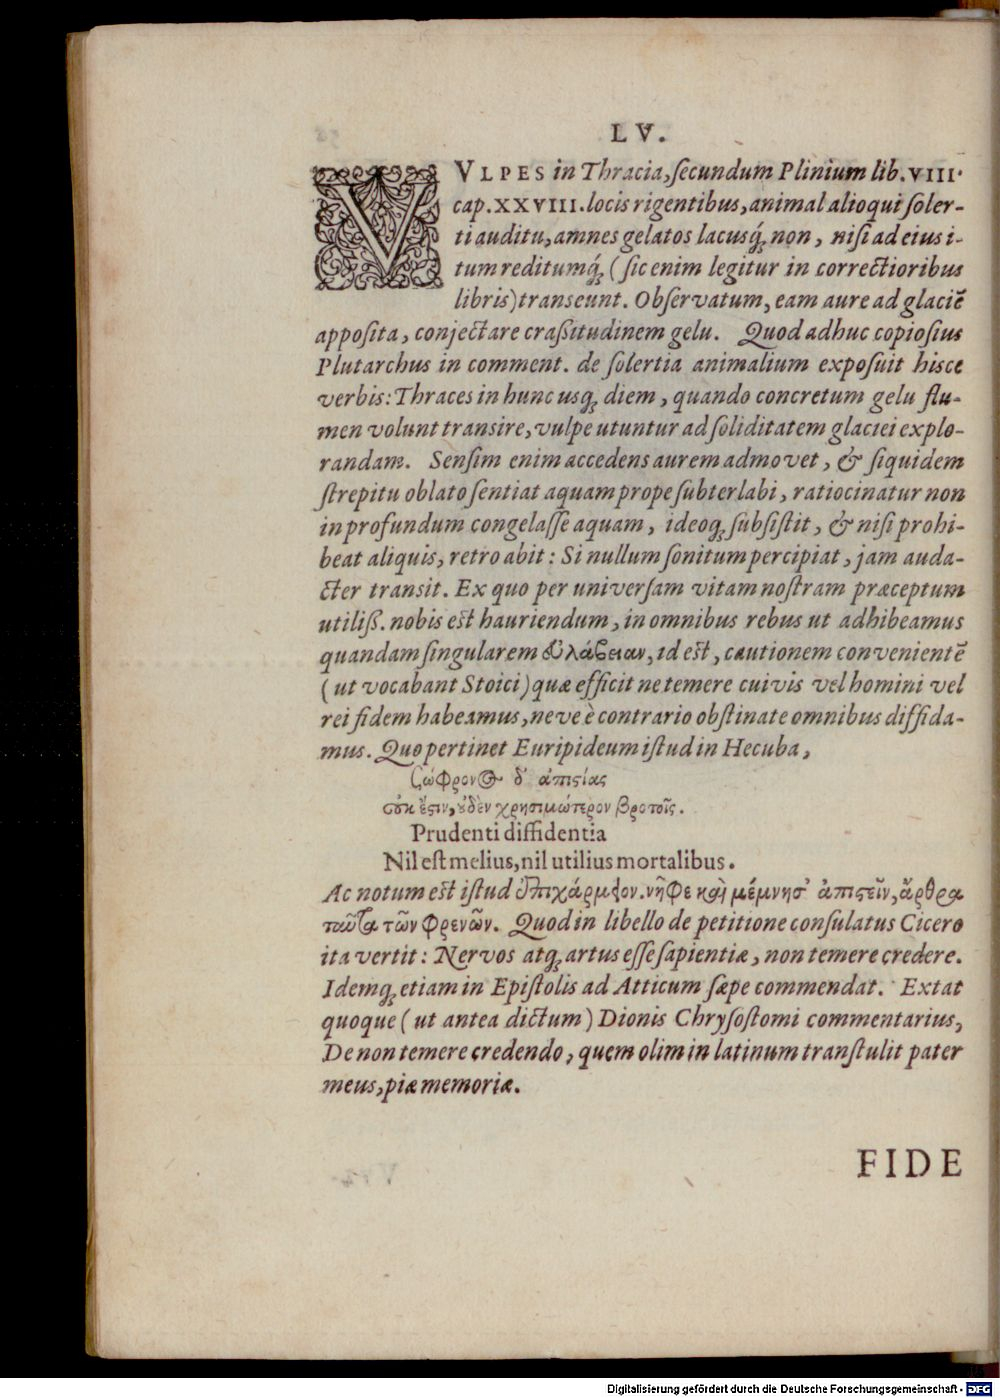 LV.
VVLPES in Thracia, ſecundum Plinium lib. VIII.
cap. XXVIII. locis rigentibus, animal alioqui ſoler-
ti auditu, amnes gelatos lacusq́ꝫ non, niſi ad eius i-
tum reditumq́ꝫ (ſic enim legitur in correctioribus
libris) tranſeunt. Obſervatum, eam aure ad glaciē
appoſita, conjectare craßitudinem gelu. Quod adhuc copioſius
Plutarchus in comment. de ſolertia animalium expoſuit hisce
verbis: Thraces in hunc usqꝫ diem, quando concretum gelu flu-
men volunt transire, vulpe utuntur ad ſoliditatem glaciei explo-
randam. Senſim enim accedens aurem admovet, & ſiquidem
ſtrepitu oblato ſentiat aquam prope ſubterlabi, ratiocinatur non
in profundum congelaſſe aquam, ideoqꝫ ſubſiſtit, & niſi prohi-
beat aliquis, retro abit: Si nullum ſonitum percipiat, jam auda-
cter transit. Ex quo per univerſam vitam noſtram præceptum
utiliß. nobis eſt hauriendum, in omnibus rebus ut adhibeamus
quandam ſingularem ευλάβειαν, id eſt, cautionem convenientē
(ut vocabant Stoici) quæ efficit ne temere cuivis vel homini vel
rei fidem habeamus, neve è contrario obſtinate omnibus diffida-
mus. Quo pertinet Euripideum iſtud in Hecuba,
ζώφρονος δ' ἀπιςίας
οὐκ ἔςιν, ουδὲν χρησιμώτερον βροτοῖς.
Prudenti diffidentia
Nil eſt melius, nil utilius mortalibus.
Ac notum eſt iſtud ἐπιχάρμιον. νῆφε καὶ μέμνησ' ἀπιςεῖν, ἄρθρα
ταῦτα τῶν φρενῶν. Quod in libello de petitione conſulatus Cicero
ita vertit: Nervos atqꝫ artus eſſe ſapientiæ, non temere credere.
Idemqꝫ etiam in Epiſtolis ad Atticum ſæpe commendat. Extat
quoque (ut antea dictum) Dionis Chryſoſtomi commentarius,
De non temere credendo, quem olim in latinum tranſtulit pater
meus, piæ memoriæ.
FIDE
Digitalisierung gefördert durch die Deutsche Forschungsgemeinschaft - DFG